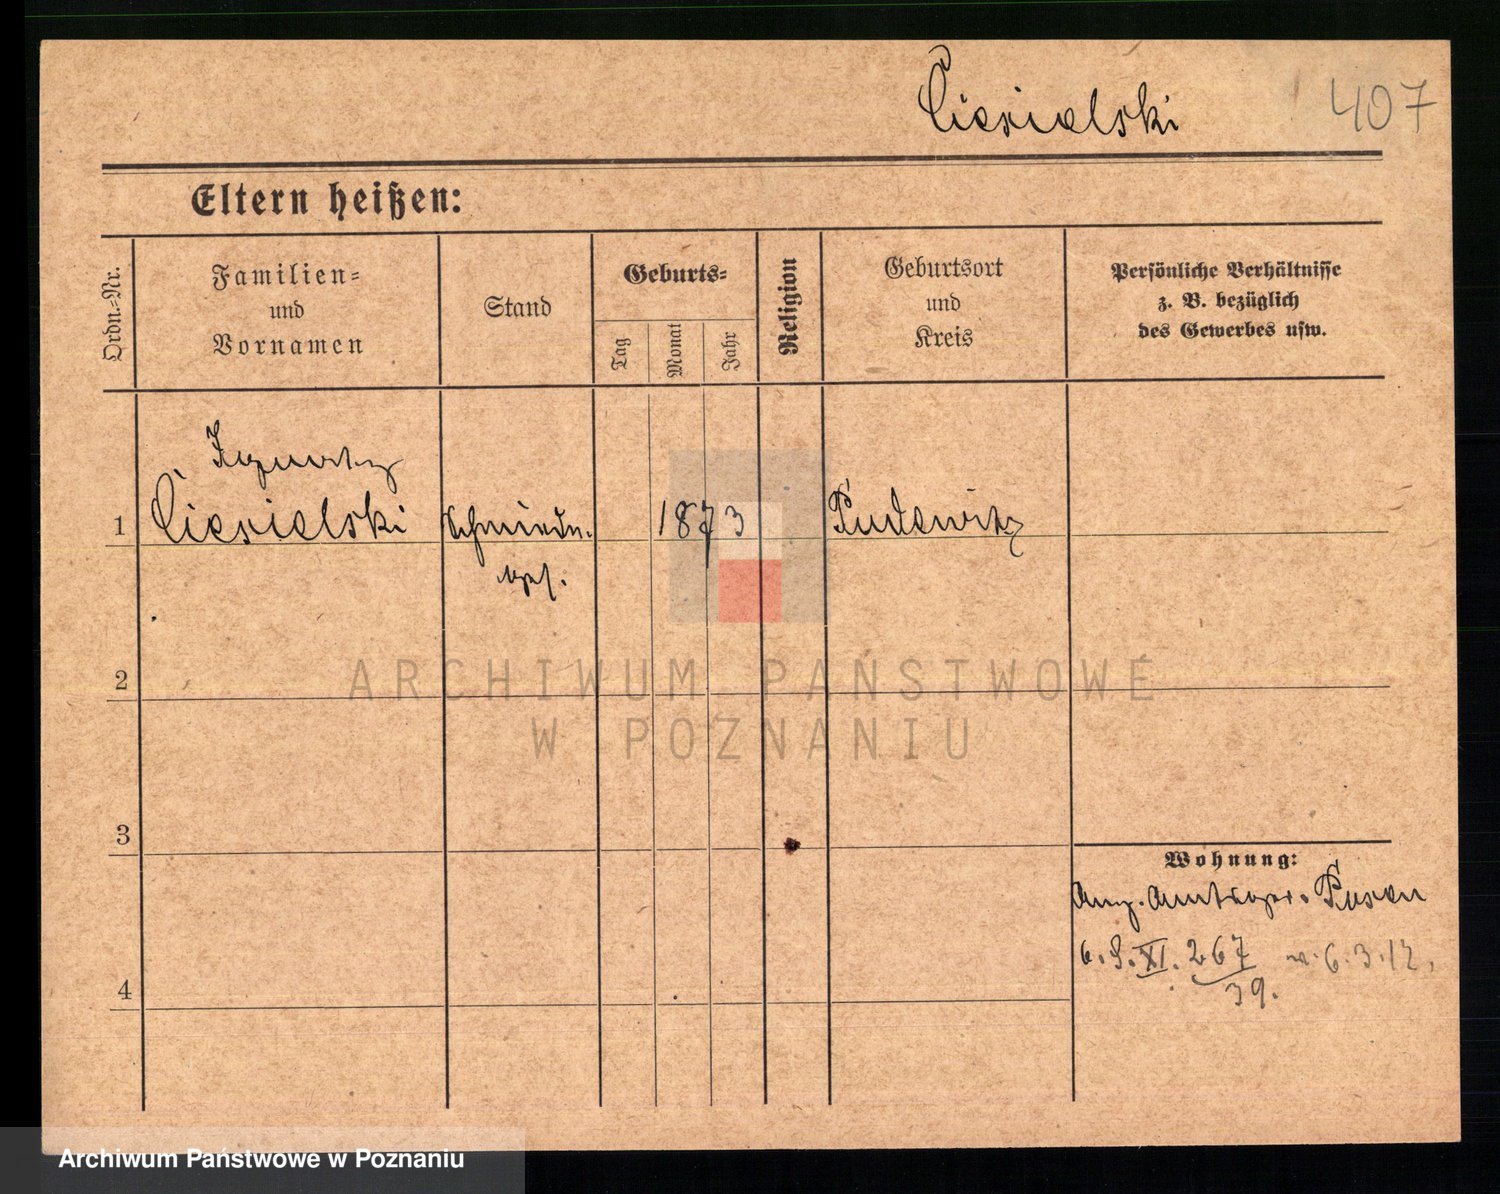 Ciesielski 407
Eltern heißen:
Ordn.-Nr.
Familien-
und
Vornamen
Stand
Geburts-
Tag
Monat
Jahr
Religion
Geburtsort
und
Kreis
Persönliche Verhältnisse
z. B. bezüglich
des Gewerbes usw.
Ciesielski
1873
Pudewitz
1
2
3
4
Wohnung:
Posen
XI. 267
39.
6.3.12.
ARCHIWUM PAŃSTWOWE
W POZNANIU
Archiwum Państwowe w Poznaniu